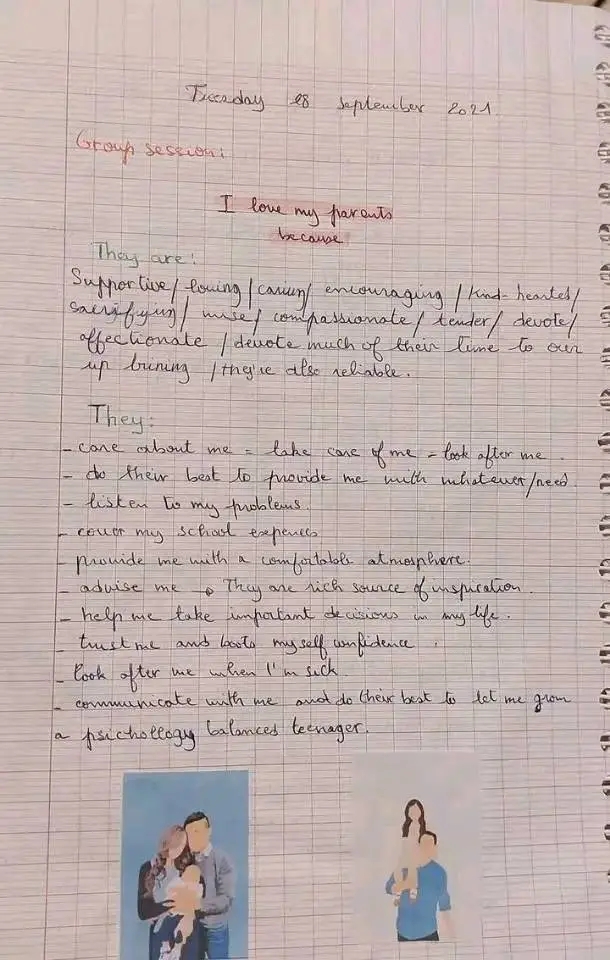 Tuesday 28 september 2021
Group session:
I love my parents
because
They are:
Supportive/ loving / caring/ encouraging / Kind-hearted/
sacrifying/ wise/ compassionate / tender/ devote/
affectionate / devote much of their time to our
up brining / they're also reliable.
They:
- care about me = take care of me = look after me.
- do their best to provide me with whatever I need.
- listen to my problems.
- cover my school expences
- provide me with a comfortable atmosphere.
- advise me → They are rich source of inspiration.
- help me take important decisions in my life.
- trust me and boots my self confidence.
- look after me when I'm sick.
- communicate with me and do their best to let me grow
a psichollogy balances teenager.